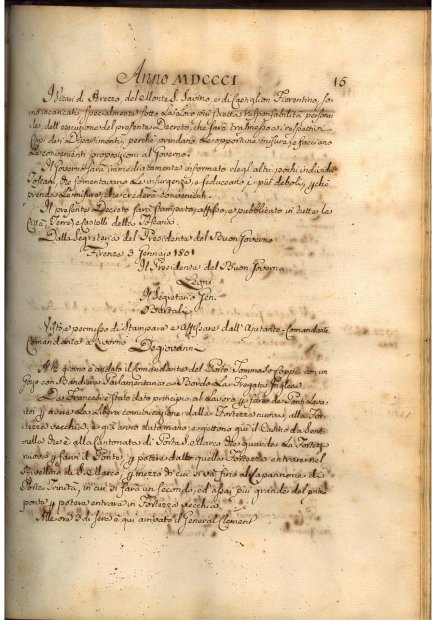 Anno MDCCCI 15
I Vicarj di Arezzo, del Monte S. Savino, e di Castiglion Fiorentino, so-
no incaricati, specialmente sotto la loro più stretta responsabilità persona-
le, dell'esecuzione del presente Decreto, che sarà trasmesso a' respettivi
Capi dei Dipartimenti, perchè prendano le opportune misure, e facciano
le convenienti proposizioni al Governo.
Il Governo sarà immediatamente informato degli altri pochi individui
Toscani, che fomentavano le insurgenze, e seducevano i più deboli, 
prenderà le misure, che crederà convenienti.
Il presente Decreto sarà stampato, affisso, e pubblicato in tutte le
Città, Terre, e Castelli della Toscana.
Dalla Segreteria del Presidente del Buon Governo
Firenze 3 Gennajo 1801
Il Presidente del Buon Governo
Leoni
Il Segretario Gen.
Bartoli
Vista permesso di Stampare e Affissare dall'Ajutante-Comandante
Comandante a Livorno
Degiovanni
A dì giorno è andato il Comandante del Porto Tommaso Coppi con un
Gozo con Bandiera Parlamentaria a Bordo la Fregata Inglese.
Da' Francesi è stato dato principio al lavoro per fare dei Ponti leva-
tori per avere la libera comunicazione dalla Fortezza nuova alla For-
tezza vecchia, e già anno dato mano, e gettono qui il Casino da Senti-
nella che è alla Cantonata di Porta S. Marco che guarda la Fortezza
nuova per farvi il Ponte, per potere dalla quella Fortezza entrare nel
Rivellino di S. Marco, per mezzo di cui si va fino al Capannone di
Porta Trinita, in cui si farà un secondo, ed assai più grande del 
ponte per potere entrare in Fortezza vecchia.
Alle ore 3 di sera è qui arrivato il General Clement